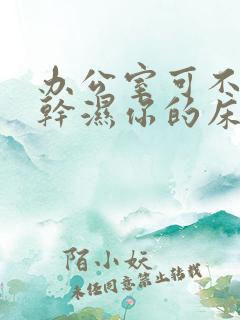 办公室可不
幹濕你的床
陌小妖
未经同意禁止转载